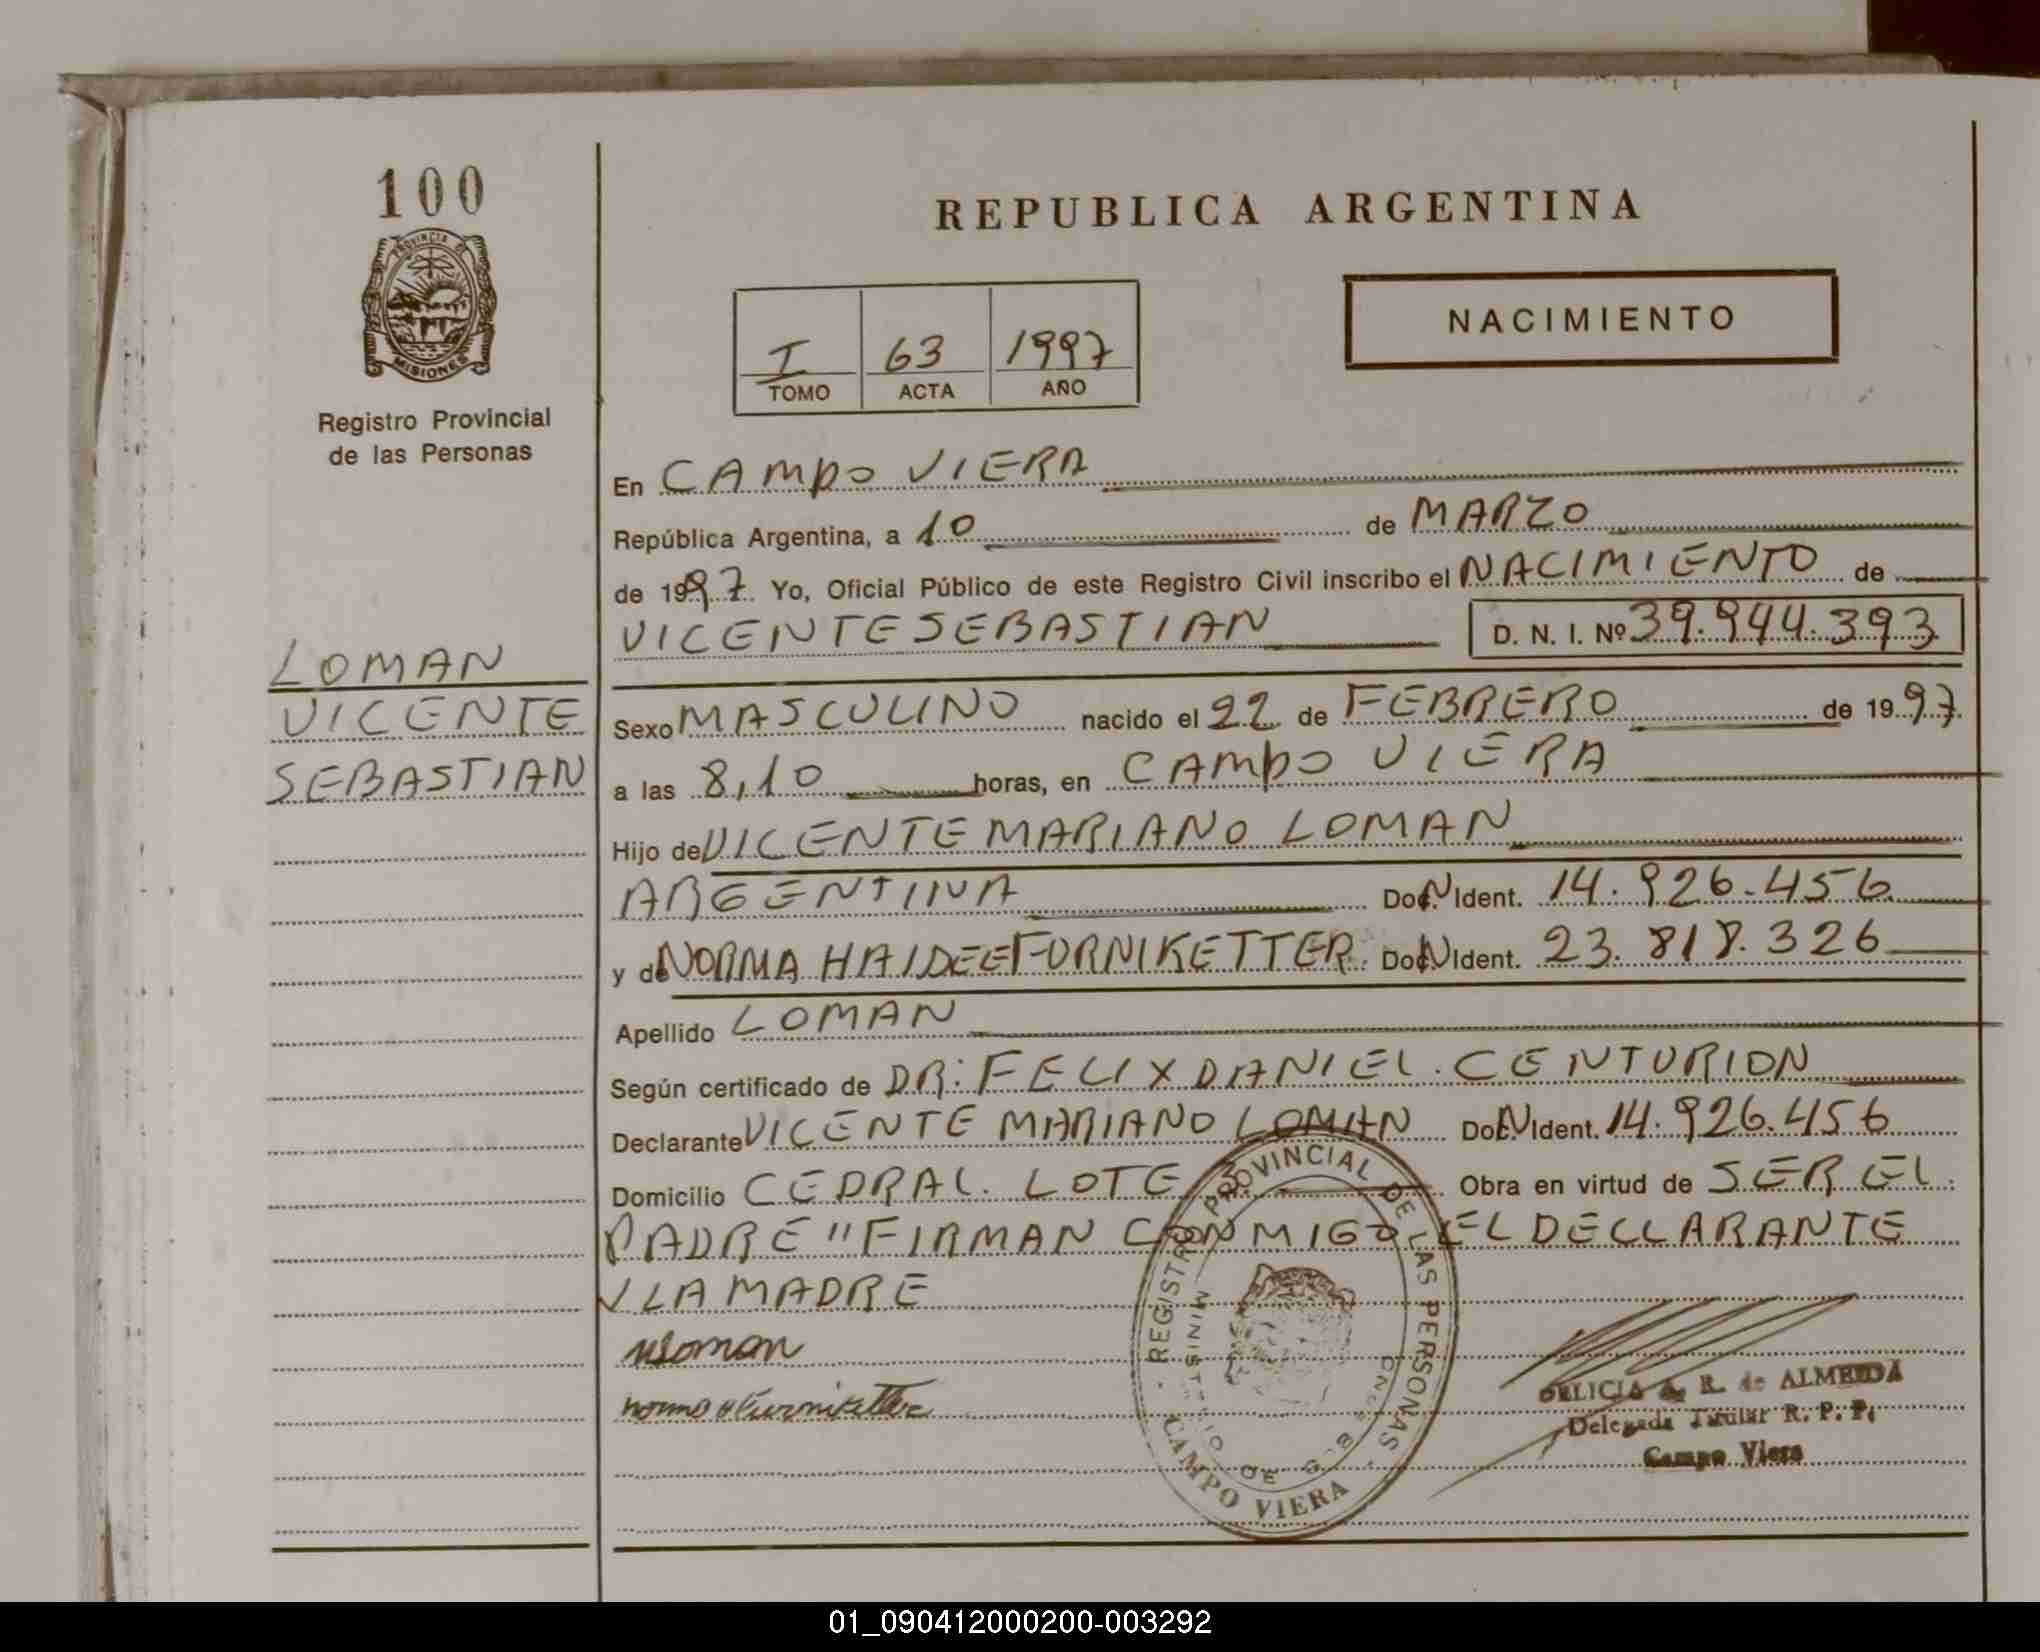 100
PROVINCIA DE
MISIONES
Registro Provincial
de las Personas
LOMAN
VICENTE
SEBASTIAN
REPUBLICA ARGENTINA
I 63 1997
TOMO ACTA AÑO
NACIMIENTO
En CAMPO VIERA
República Argentina, a 10 de MARZO
de 1997 Yo, Oficial Público de este Registro Civil inscribo el NACIMIENTO de
VICENTE SEBASTIAN D. N. I. Nº 39.944.393
Sexo MASCULINO nacido el 22 de FEBRERO de 1997.
a las 8,10 horas, en CAMPO VIERA
Hijo de VICENTE MARIANO LOMAN
ARGENTINA Doc.N Ident. 14.926.456
y de NORMA HAIDEE FURNIKETTER Doc.N Ident. 23.818.326
Apellido LOMAN
Según certificado de DR: FELIX DANIEL. CENTURION
Declarante VICENTE MARIANO LOMAN Doc.N Ident. 14.926.456
Domicilio CEDRAL. LOTE Obra en virtud de SER EL
PADRE "FIRMAN CONMIGO EL DECLARANTE
Y LA MADRE
REGISTRO PROVINCIAL DE LAS PERSONAS
MINISTERIO DE
CAMPO VIERA
DELICIA R. de ALMEIDA
Delegada Titular R. P. P.
Campo Viera
01_090412000200-003292